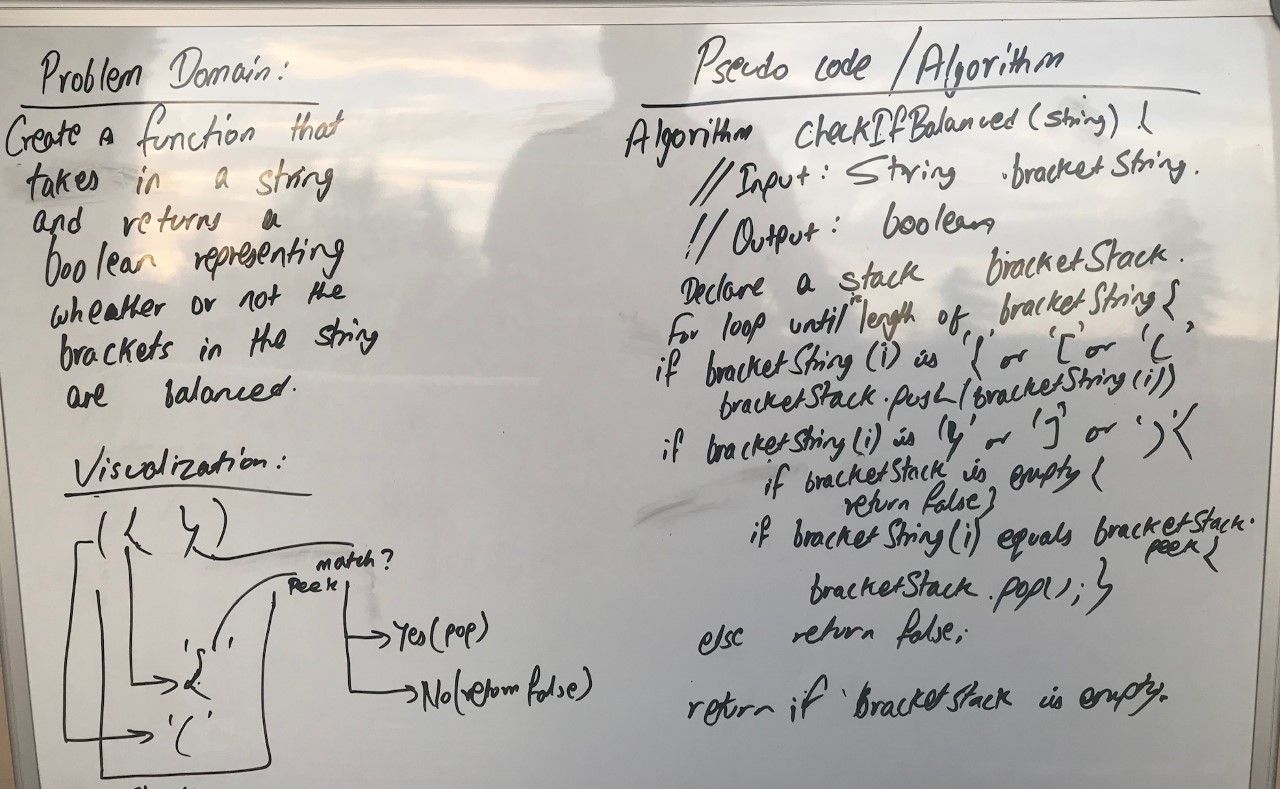 Problem Domain:
Create a function that
takes in a string
and returns a
boolean representing
wheather or not the
brackets in the string
are balanced.
Visualization:
( { } )
match?
Peek
Yes(pop)
No(return false)
'{'
'('
Pseudo code / Algorithm
Algorithm checkIfBalanced (string) {
// Input: String bracketString.
// Output: boolean
Declare a stack bracketStack.
for loop until length of bracketString {
if bracketString (i) is '{' or '[' or '('
bracketStack.push(bracketString(i))
if bracketString(i) is '}' or ']' or ')' {
if bracketStack is empty {
return false}
if bracketString(i) equals bracketStack.
peek {
bracketStack.pop(); }
else return false;
return if bracketStack is empty.